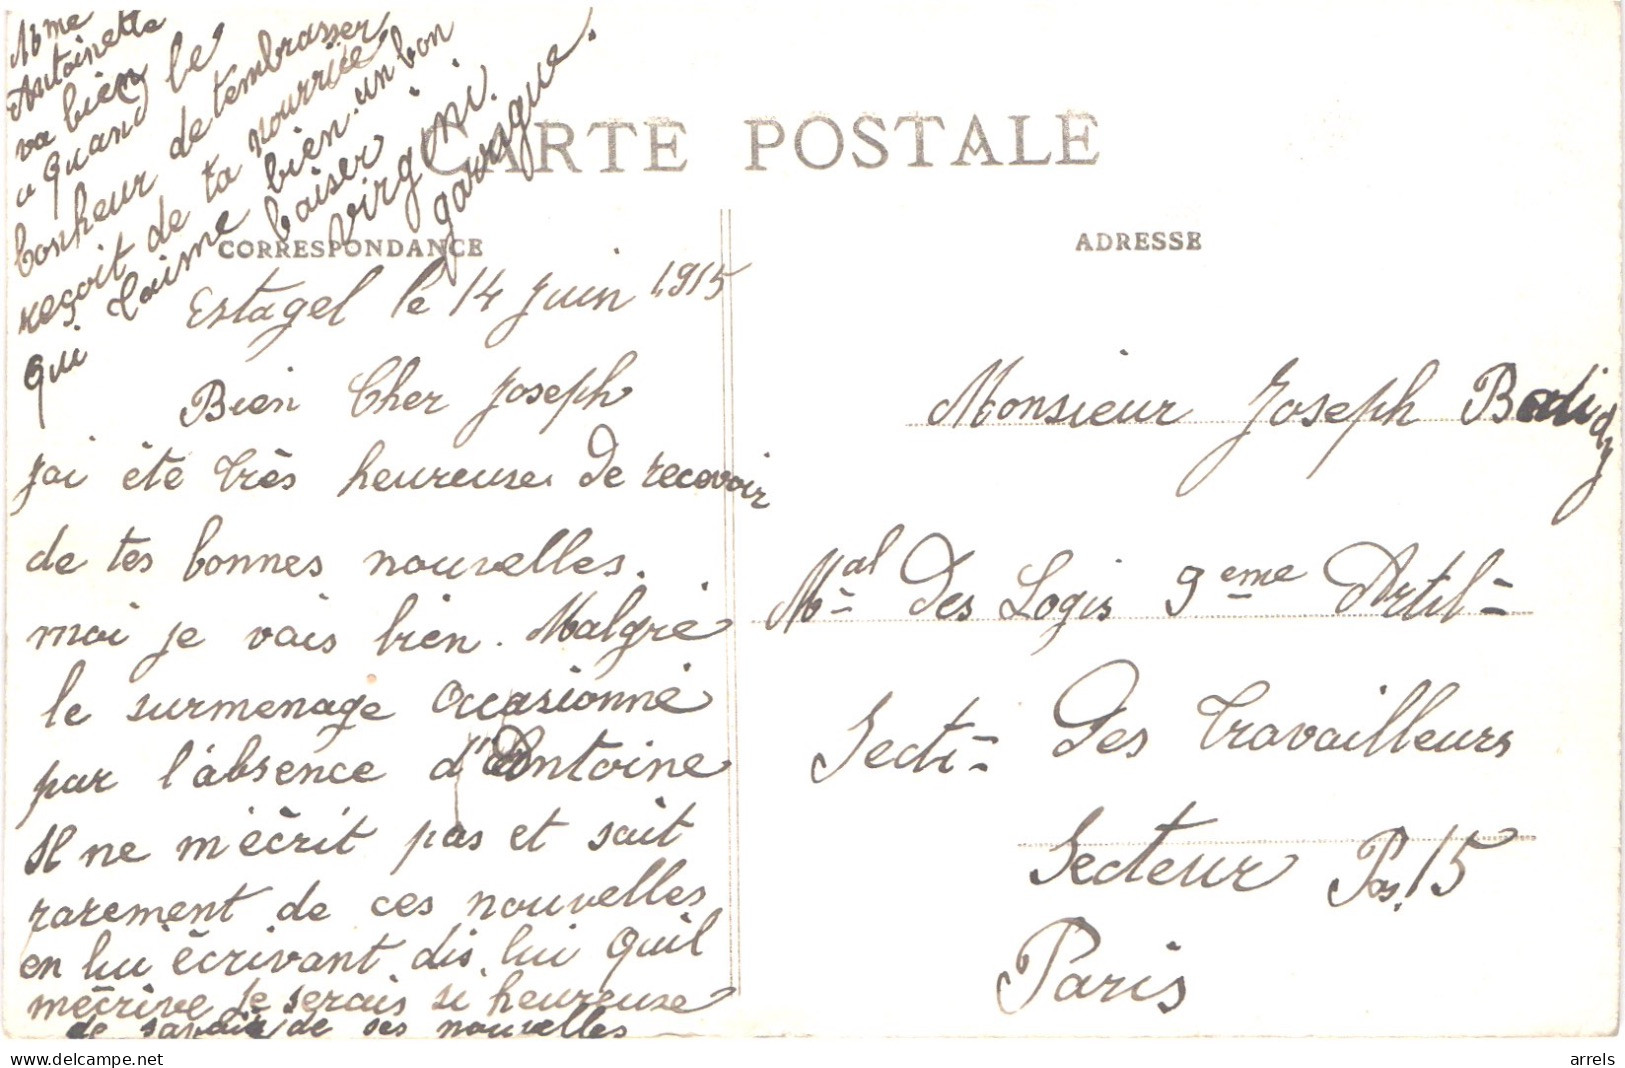 CARTE POSTALE
CORRESPONDANCE
ADRESSE
Estagel le 14 Juin 1915
Bien Cher Joseph
J'ai été très heureuse de recevoir
de tes bonnes nouvelles.
moi je vais bien. Malgré
le surmenage occasionné
par l'absence d'Antoine
Il ne m'écrit pas et sait
rarement de ces nouvelles
en lui écrivant dis lui quil
mécrive je serais si heureuse
de savoir de ses nouvelles
Mme
Antoinette
va bien
a quand le
bonheur de tembrasser
reçoit de ta nourrice
qui taime bien. un bon
baiser
Virgini.
garrigue.
Monsieur Joseph
Mal des Logis 9eme Artil-
Secti- des Travailleurs
Secteur Pos. 15
Paris
www.delcampe.net
arrels